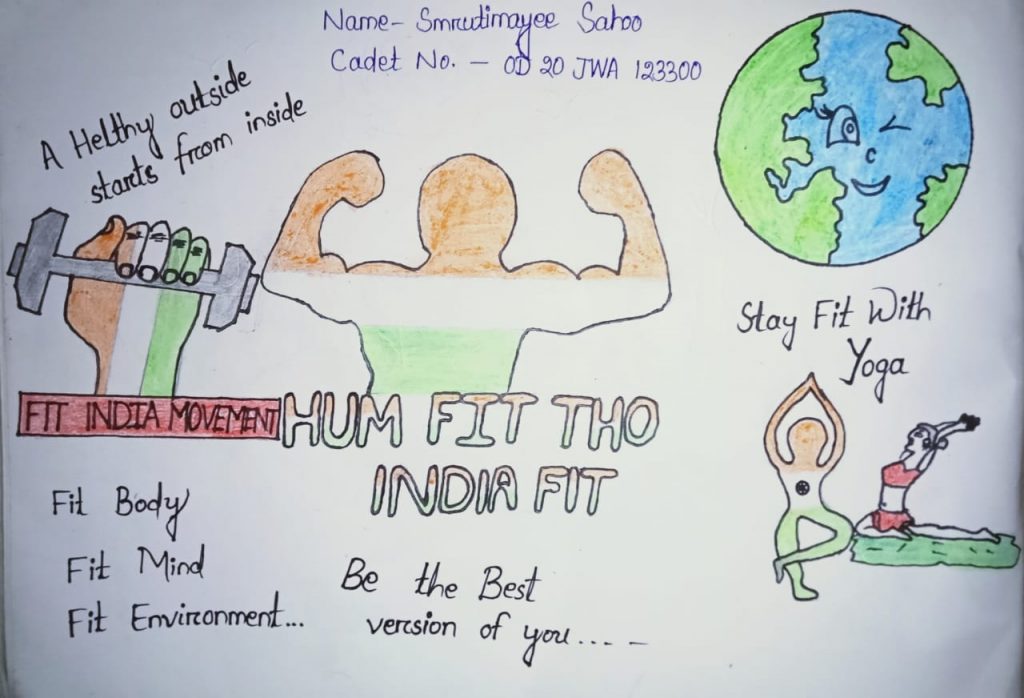 Name- Smrutimayee Sahoo
Cadet No. - OD 20 JWA 123300
A Helthy outside
starts from inside
FIT INDIA MOVEMENT
HUM FIT THO
INDIA FIT
Stay Fit With
Yoga
Fit Body
Fit Mind
Fit Environment...
Be the Best
version of you.... -